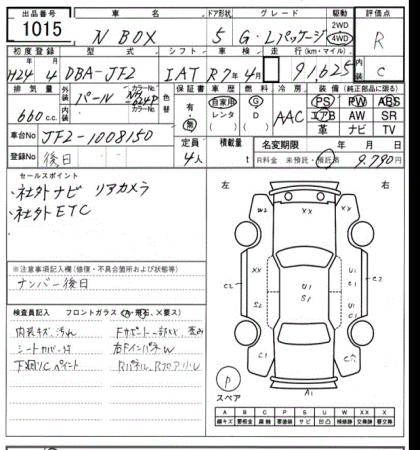 出品番号 車名 ドア形状 グレード 駆動 評価点
1015 N BOX 5 G・Lパッケージ 2WD 4WD R
初度登録 型式 シフト 車検 走行(km・マイル) 内装
H24 4 DBA-JF2 IAT R7年4月 91625 C
排気量 外装 カラーNo. 色替 保証書 車歴 燃料 冷房 装備(純正部品に限る)
660 c.c. パール NH-624P 有・無 自家用 レンタ G D AAC PS PW ABS
エアB AW SR
革 ナビ TV
車台No JF2-1008150
定員 4人 積載量 t 名変期限 年 月 日
登録No 後日 R料金 未預託・預託済 9,790円
セールスポイント
・社外ナビ リアカメラ
・社外ETC
※注意事項記入欄(修復・不具合箇所および状態等)
ナンバー後日
検査員記入欄 フロントガラス(A・飛石、×要ス)
内装キズ、汚れ
シートカバー付
下廻りC ペイント
左 右
W2 XX XX
XX U1 S1 U1
C2 S2 C1 C2
C1
A1
P
スペア
A B C P S U W X XX
線キズ 要板金 腐蝕 要塗装 サビ 凹凸 補修跡 要交換 交換跡